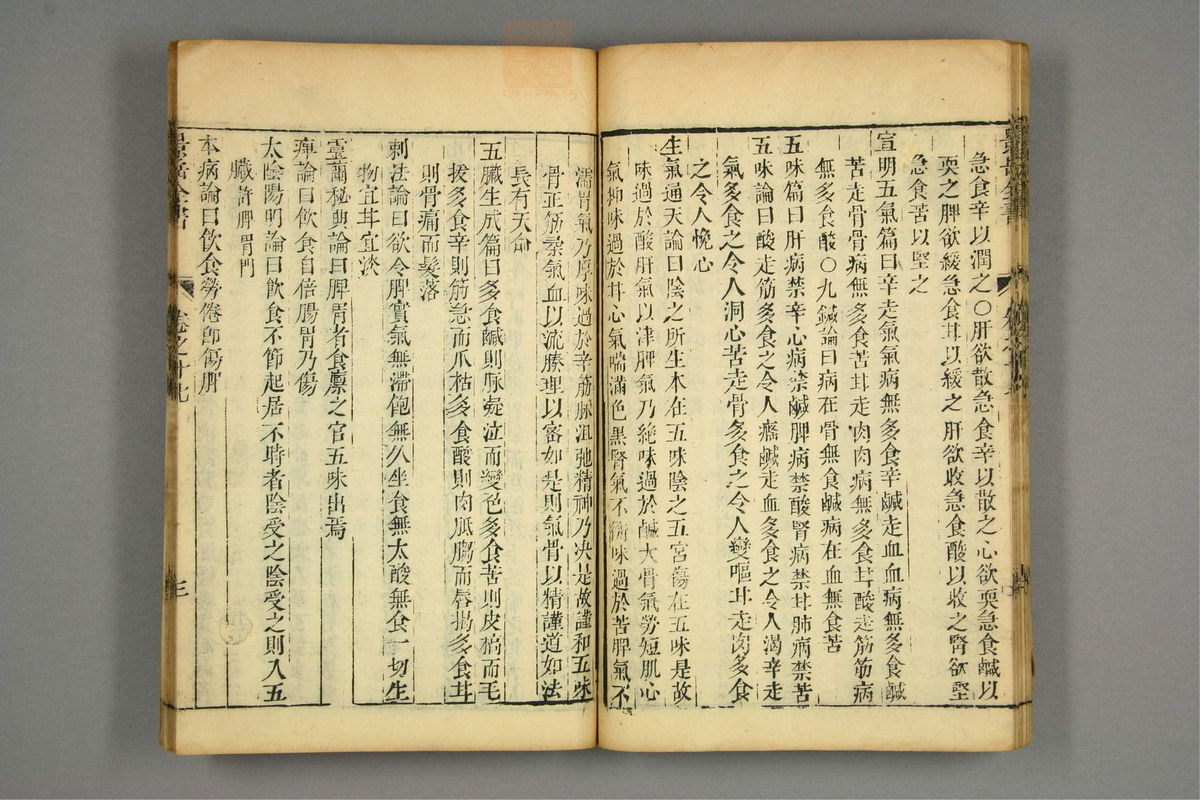 急食辛以潤之〇肝欲散急食辛以散之心欲耎急食鹹以
耎之脾欲緩急食甘以緩之肝欲收急食酸以收之腎欲堅
急食苦以堅之
宣明五氣篇曰辛走氣氣病無多食辛鹹走血血病無多食鹹
苦走骨骨病無多食苦甘走肉肉病無多食甘酸走筋筋病
無多食酸〇九鍼論曰病在骨無食鹹病在血無食苦
五味篇曰肝病禁辛心病禁鹹脾病禁酸腎病禁甘肺病禁苦
五味論曰酸走筋多食之令人癃鹹走血多食之令人渴辛走
氣多食之令人洞心苦走骨多食之令人變嘔甘走肉多食
之令人悗心
生氣通天論曰陰之所生本在五味陰之五宮傷在五味是故
味過於酸肝氣以津脾氣乃絶味過於鹹大骨氣勞短肌心
氣抑味過於甘心氣喘滿色黑腎氣不衡味過於苦脾氣不
濡胃氣乃厚味過於辛筋脉沮弛精神乃央是故謹和五味
骨正筋柔氣血以流腠理以密如是則氣骨以精謹道如法
長有天命
五臟生成篇曰多食鹹則脉凝泣而變色多食苦則皮槁而毛
拔多食辛則筋急而爪枯多食酸則肉胝䐢而唇揭多食甘
則骨痛而髮落
刺法論曰欲令脾實氣無滯飽無久坐食無太酸無食一切生
物宜甘宜淡
靈蘭秘典論曰脾胃者倉廩之官五味出焉
痺論曰飲食自倍腸胃乃傷
太陰陽明論曰飲食不節起居不時者陰受之陰受之則入五
臟詳脾胃門
本病論曰飲食勞倦卽傷脾
景岳全書
卷之十九
三